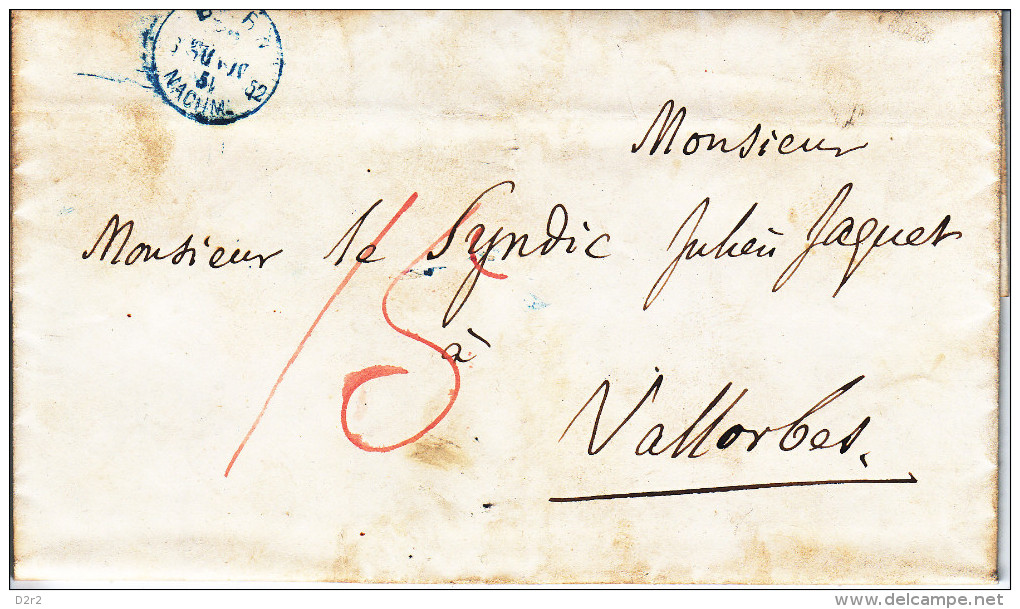 51
52
NACHM
Monsieur
Monsieur le Syndic Julien Jaquet
15
à
Vallorbes.
D2r2
delcampe.net